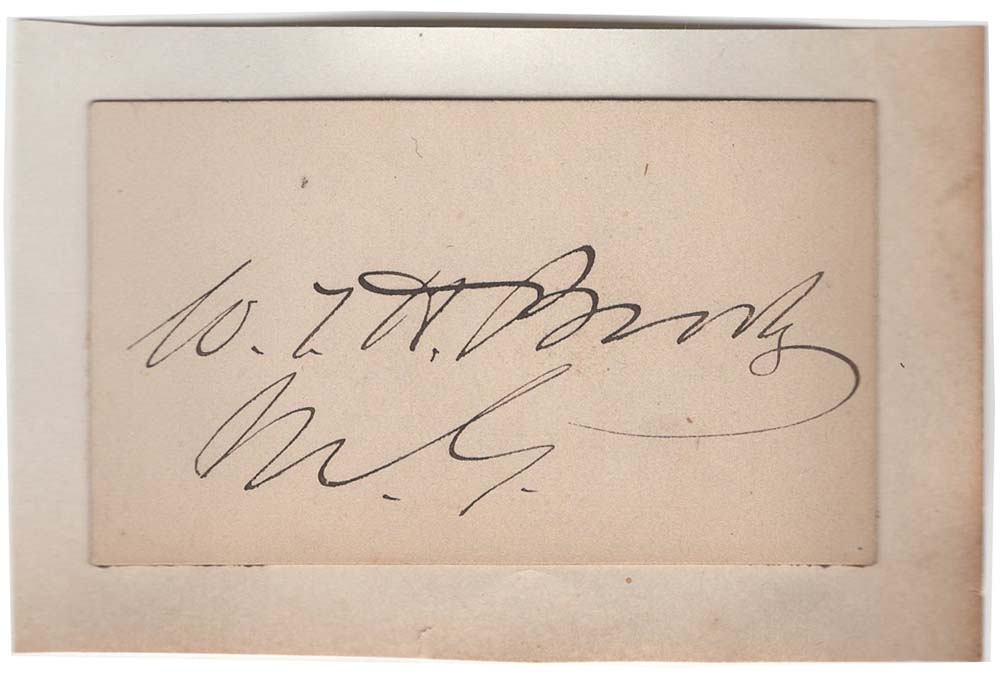 W. T. H. Brooks
M. G.